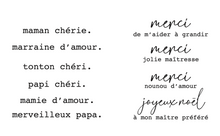 maman chérie.
marraine d'amour.
tonton chéri.
papi chéri.
mamie d'amour.
merveilleux papa.
merci
de m'aider à grandir
merci
jolie maîtresse
merci
nounou d'amour
joyeux noël
à mon maître préféré